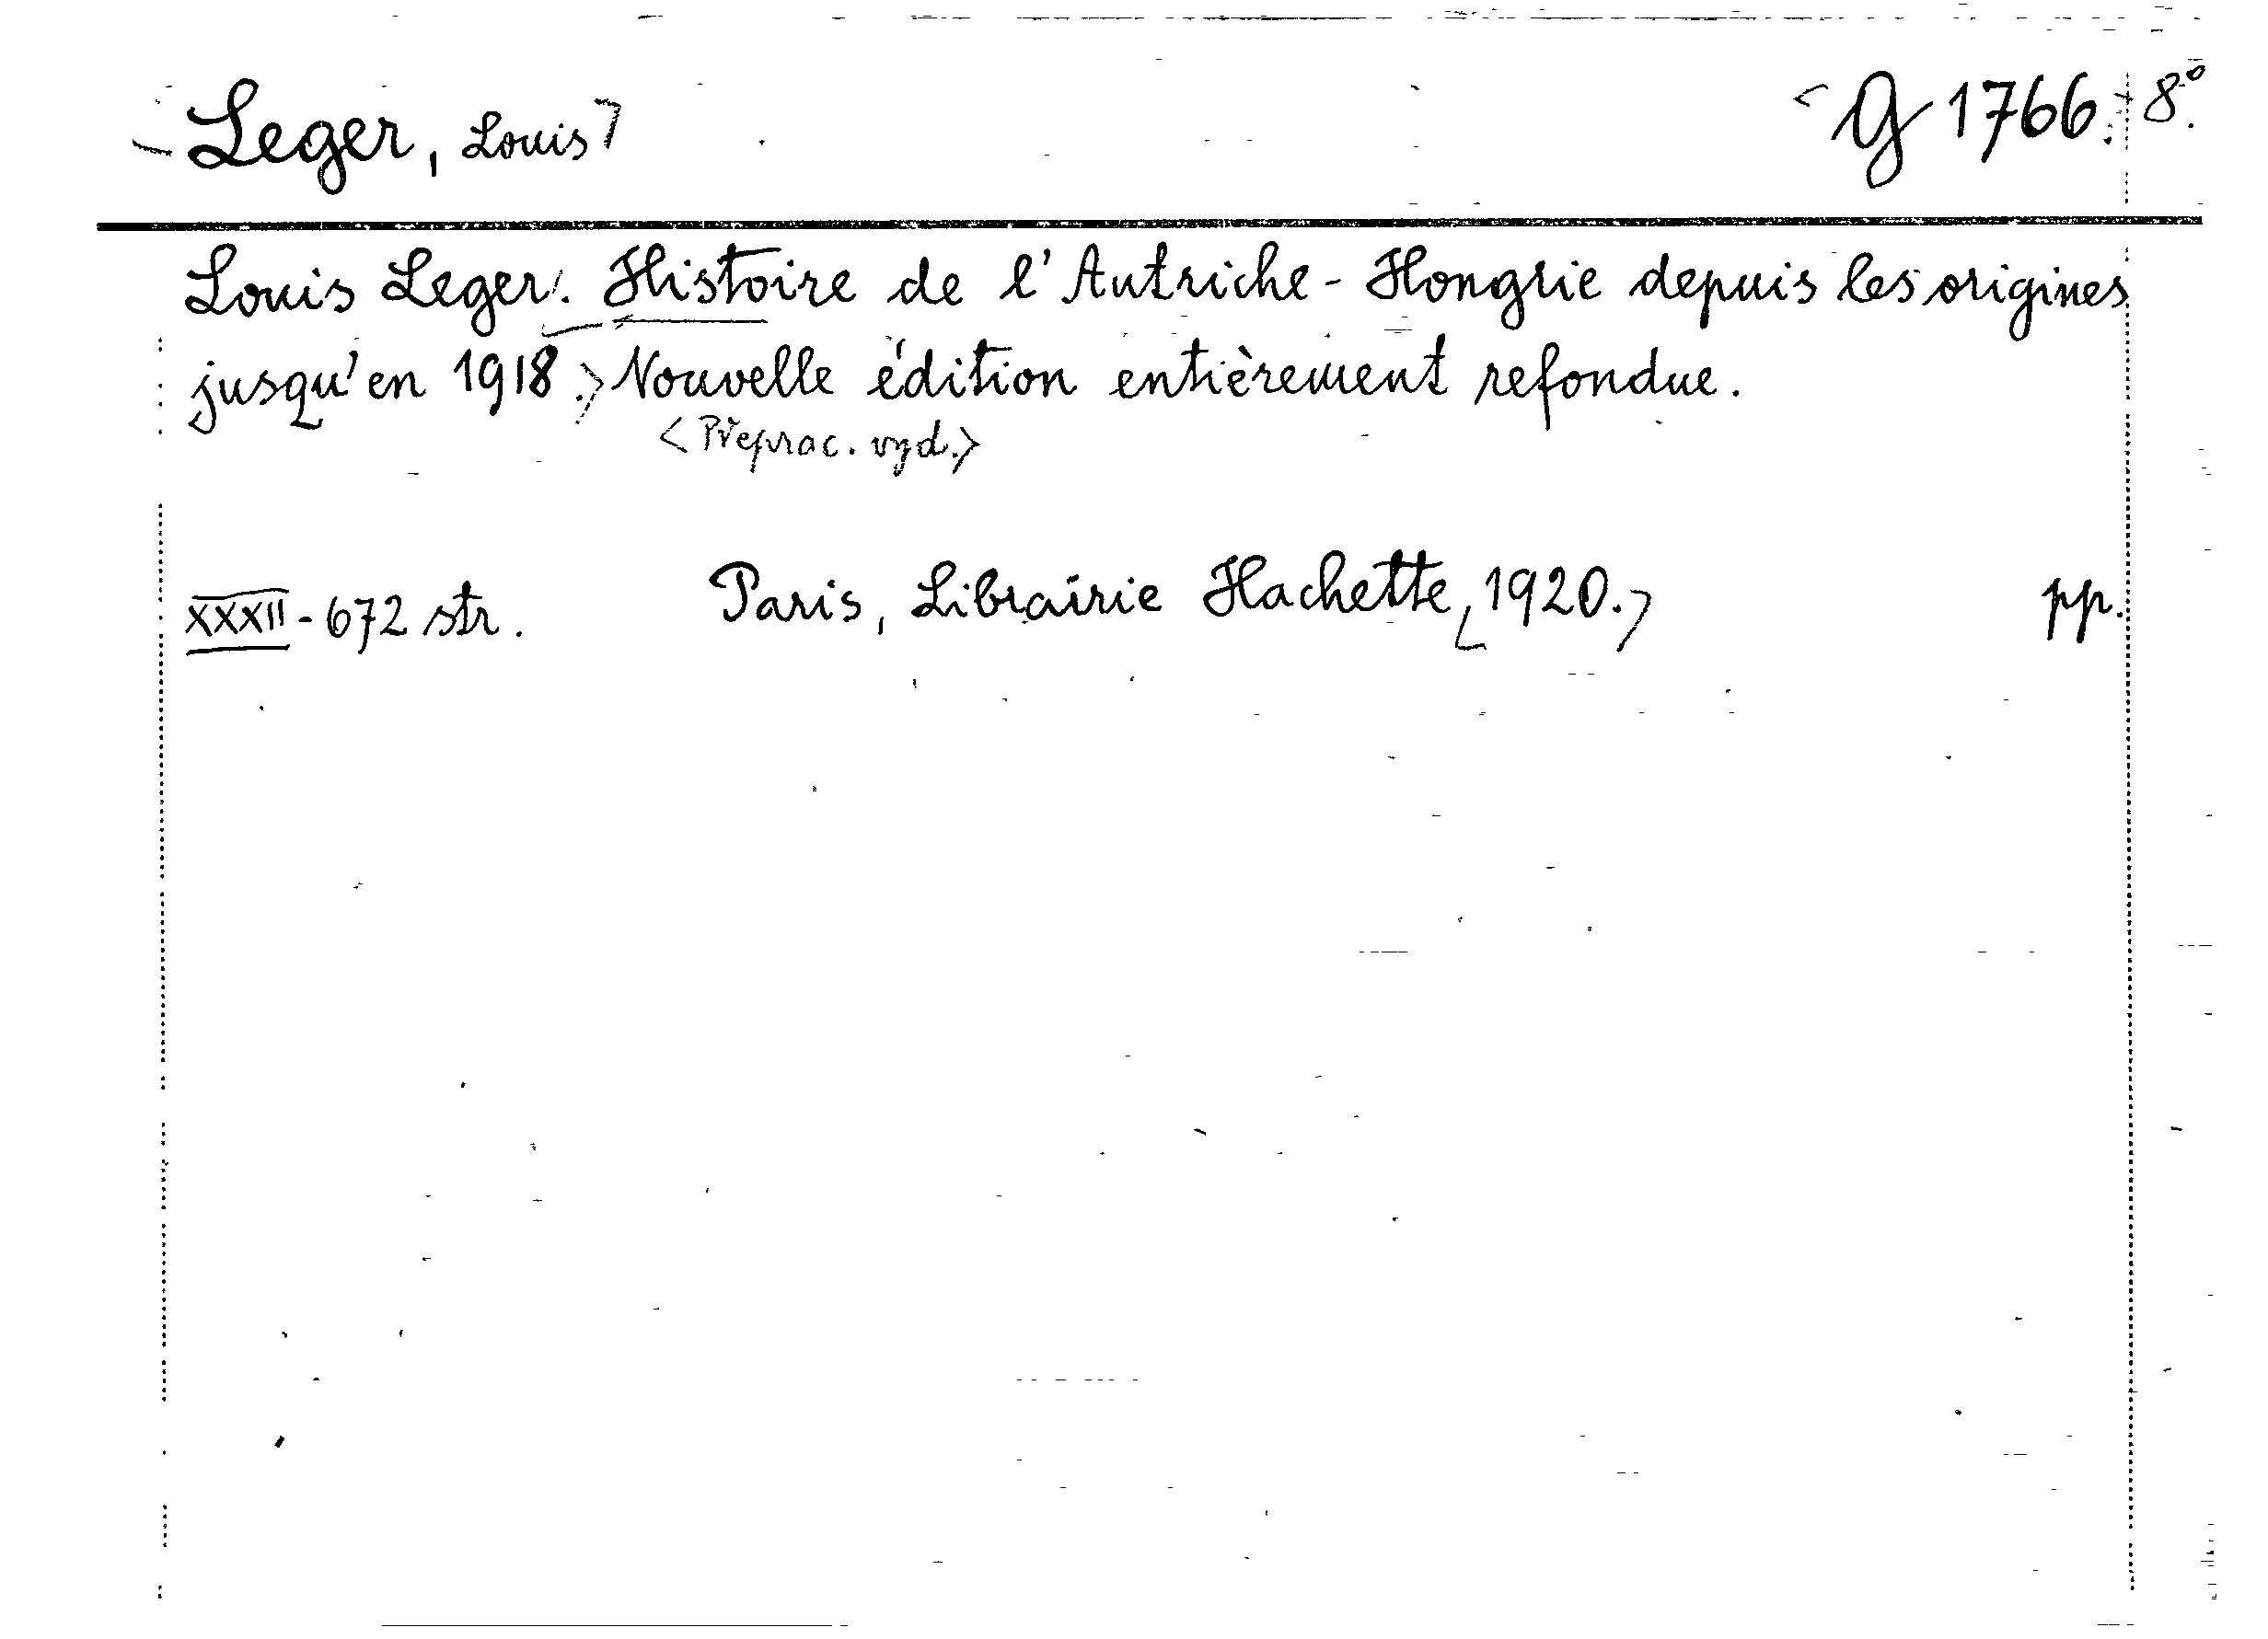 Leger, Louis
G 1766. 8°.
Louis Leger. Histoire de l'Autriche-Hongrie depuis les origines
jusqu'en 1918. Nouvelle édition entièrement refondue.
<Přeprac. vyd.>
XXXII-672 str. Paris, Librairie Hachette, 1920. pp.